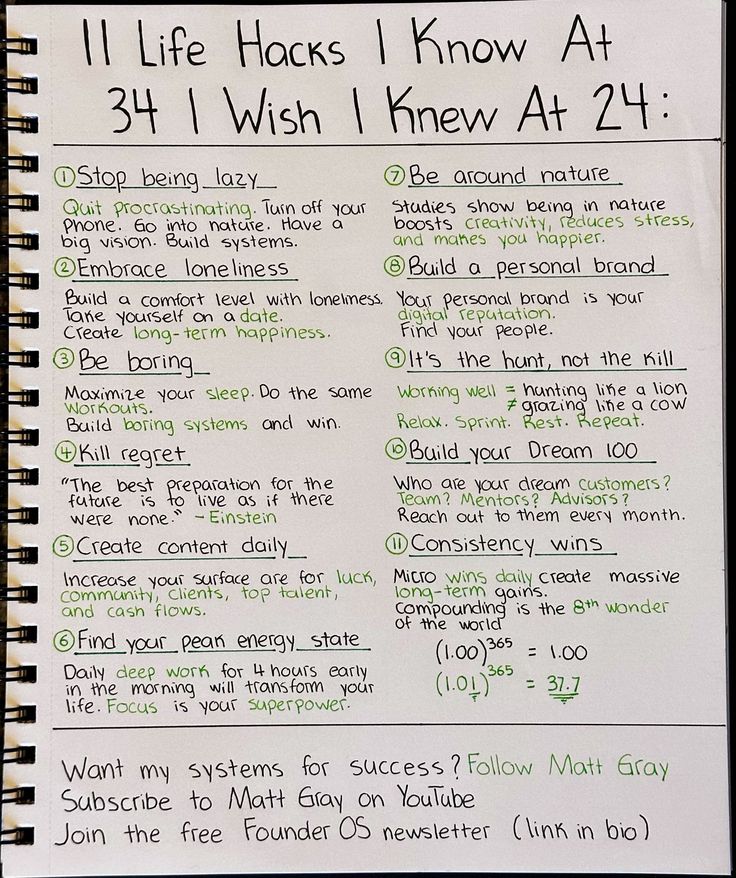 11 Life Hacks I Know At
34 I Wish I Knew At 24:
① Stop being lazy
Quit Procrastinating. Turn off your
Phone. Go into nature. Have a
big vision. Build systems.
② Embrace loneliness
Build a comfort level with loneliness.
Take yourself on a date.
Create long-term happiness.
③ Be boring
Maximize your sleep. Do the same
workouts.
Build boring systems and win.
④ Kill regret
"The best preparation for the
future is to live as if there
were none." - Einstein
⑤ Create content daily
Increase your surface are for luck,
community, clients, top talent,
and cash flows.
⑥ Find your peak energy state
Daily deep work for 4 hours early
in the morning will transform your
life. Focus is your superpower.
⑦ Be around nature
Studies show being in nature
boosts creativity, reduces stress,
and makes you happier.
⑧ Build a personal brand
Your personal brand is your
digital reputation.
Find your people.
⑨ It's the hunt, not the kill
Working well = hunting like a lion
≠ grazing like a cow
Relax. Sprint. Rest. Repeat.
⑩ Build your Dream 100
Who are your dream customers?
Team? Mentors? Advisors?
Reach out to them every month.
⑪ Consistency wins
Micro wins daily create massive
long-term gains.
Compounding is the 8th wonder
of the world
(1.00)³⁶⁵ = 1.00
(1.01)³⁶⁵ = 37.7
Want my systems for success? Follow Matt Gray
Subscribe to Matt Gray on YouTube
Join the free Founder OS newsletter (link in bio)